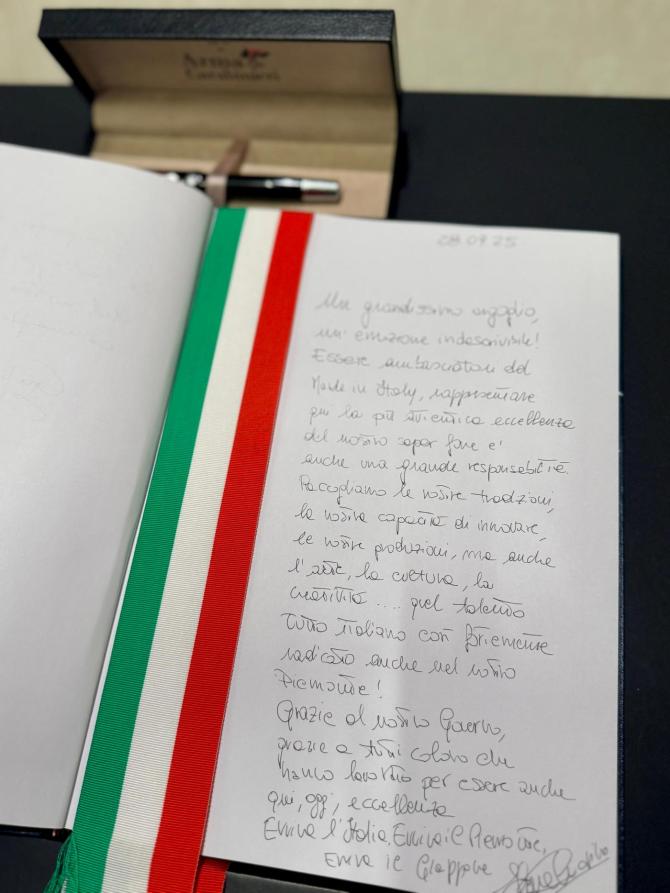 Arma
Carabinieri
28.09.25
Un grandissimo orgoglio,
un' emozione indescrivibile!
Essere ambasciatori del
Made in Italy, rappresentare
qui la più autentica eccellenza
del nostro saper fare e'
anche una grande responsabilità.
Raccogliamo le nostre tradizioni,
la nostra capacità di innovare,
le nostre produzioni, ma anche
l'arte, la cultura, la
creatività .... quel talento
tutto italiano così fortemente
radicato anche nel nostro
Piemonte!
Grazie al nostro Governo,
grazie a tutti coloro che
hanno lavorato per essere anche
qui, oggi, eccellenza
Evviva l'Italia, Evviva il Piemonte,
Evviva il Giappone